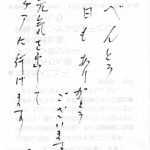 べんとう
日もありがとう
ございます
元気を出して
デアに行けます